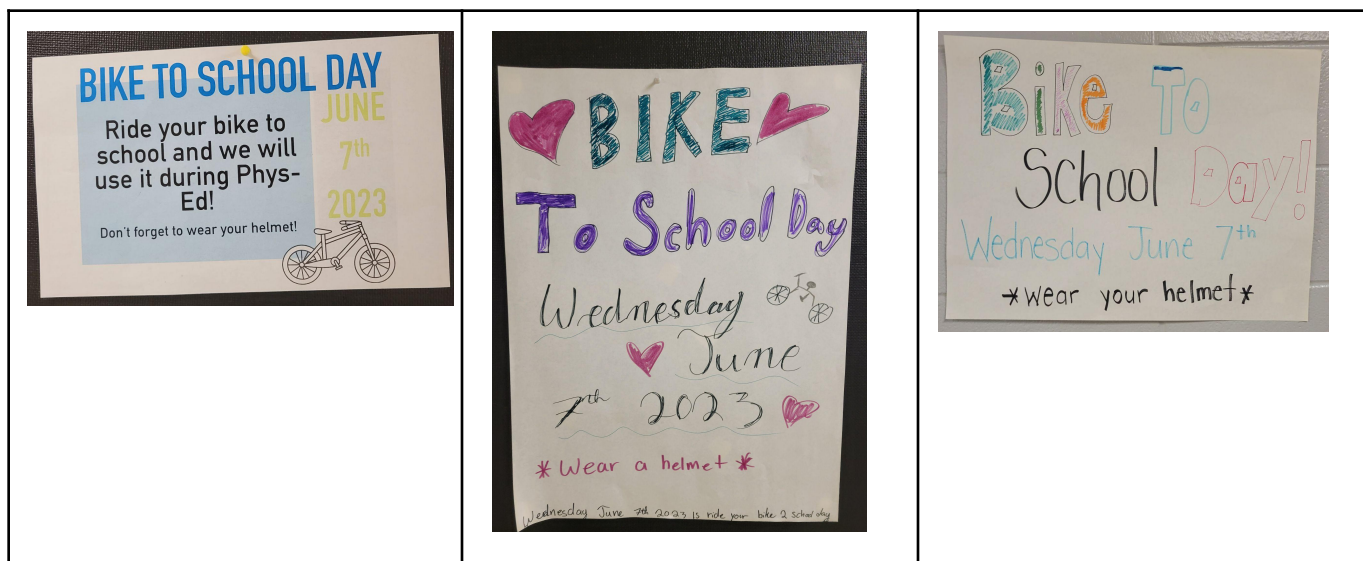 BIKE TO SCHOOL DAY
JUNE
7th
2023
Ride your bike to
school and we will
use it during Phys-
Ed!
Don't forget to wear your helmet!
BIKE
To School Day
Wednesday
June
7th 2023
*Wear a helmet*
Wednesday June 7th 2023 is ride your bike 2 school day
Bike To
School Day!
Wednesday June 7th
*Wear your helmet*